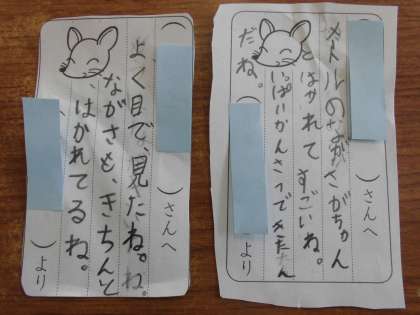 （ ）さんへ
メートルの さがちゃん
とはかれてすごいね。
いっぱいかんさつできたん
だね。
（ ）より
（ ）さんへ
よく目で、見たね。ね。
ながさも、きちんと
、はかれてるね。
（ ）より